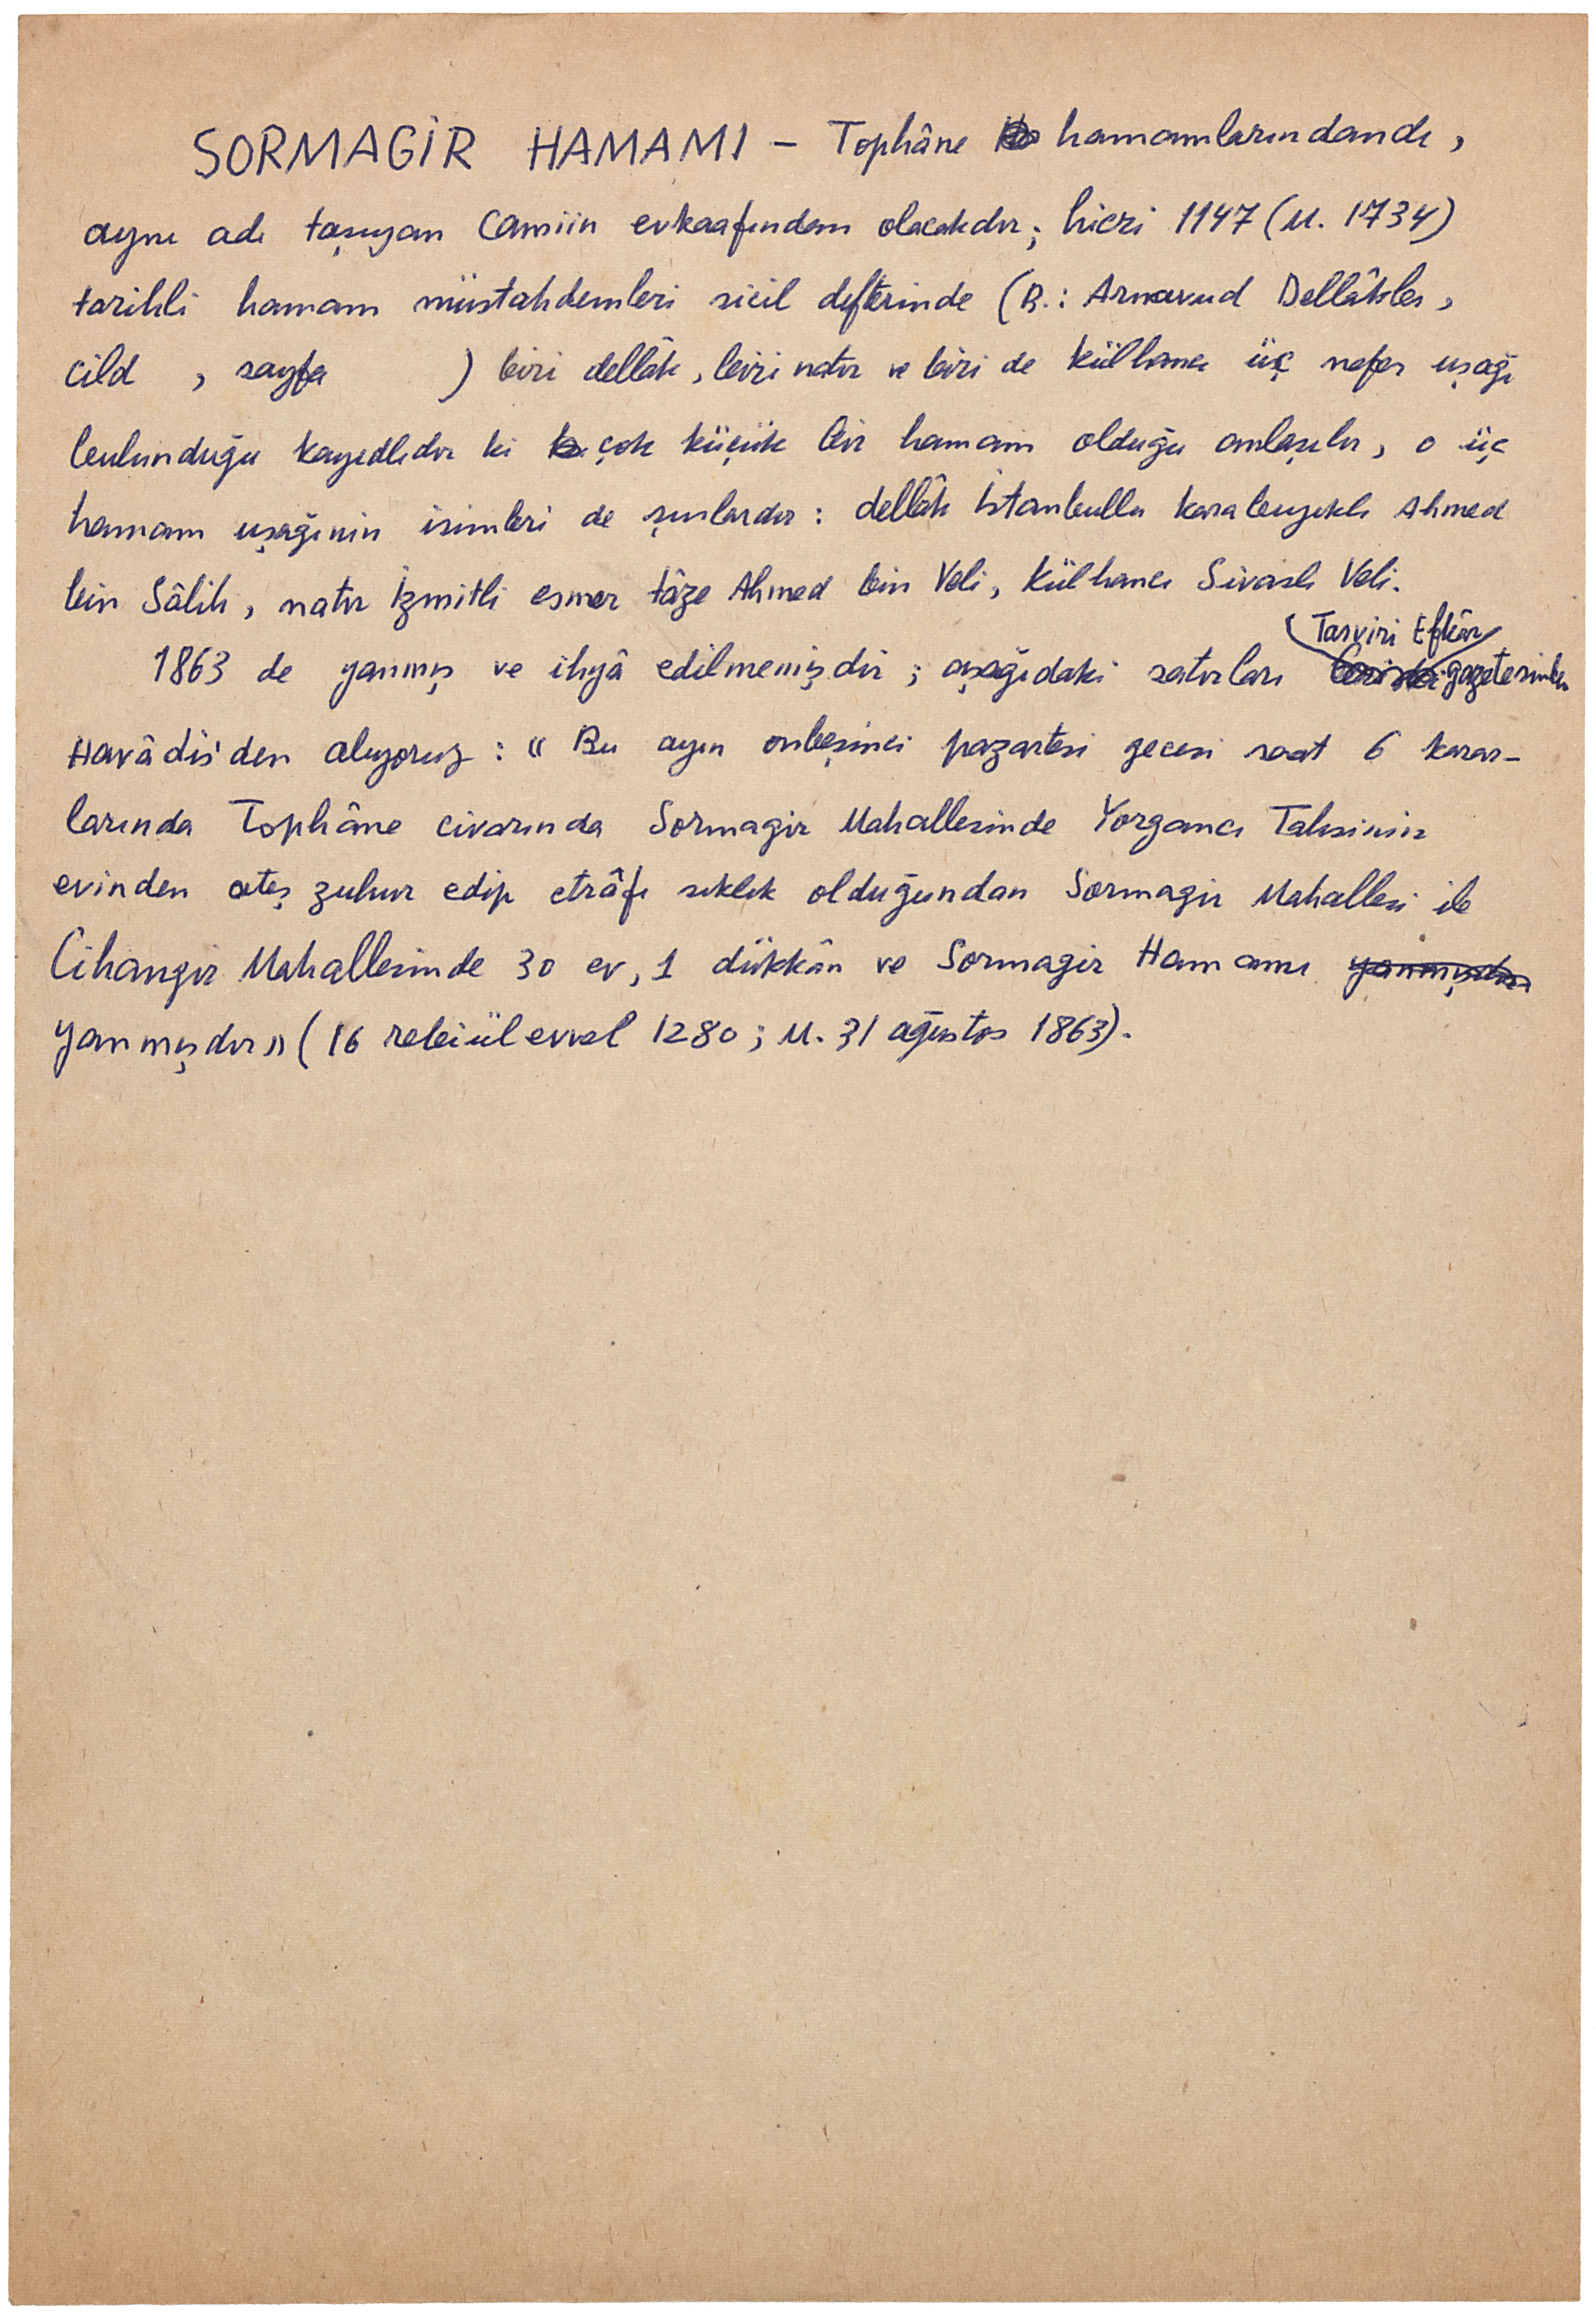 SORMAGİR HAMAMI – Tophâne hamamlarındandı,
aynı adı taşıyan Camiin evkaafından olacakdır; hicrî 1147 (M. 1734)
tarihli hamam müstahdemleri sicil defterinde (B.: Arnavud Dellâkler,
cild , sayfa ) biri dellâk, biri natır ve biri de külhancı üç nefer uşağı
bulunduğu kayıdlıdır ki çok küçük bir hamam olduğu anlaşılır, o üç
hamam uşağının isimleri de şunlardır: dellâk İstanbullu kara bıyıklı Ahmed
bin Sâlih, natır İzmitli esmer tâze Ahmed bin Veli, külhancı Sivaslı Veli.
Tasviri Efkâr
1863 de yanmış ve ihyâ edilmemişdir; aşağıdaki satırları gazetesinden
Havâdis'den alıyoruz: "Bu ayın onbeşinci pazartesi gecesi saat 6 karar-
larında Tophâne civarında Sormagir Mahallesinde Yorgancı Tahsinin
evinden ateş zuhur edip etrâfı sıklık olduğundan Sormagir Mahallesi ile
Cihangir Mahallesinde 30 ev, 1 dükkân ve Sormagir Hamamı yanmışdır
yanmışdır" (16 rebiülevvel 1280; M. 31 ağustos 1863).